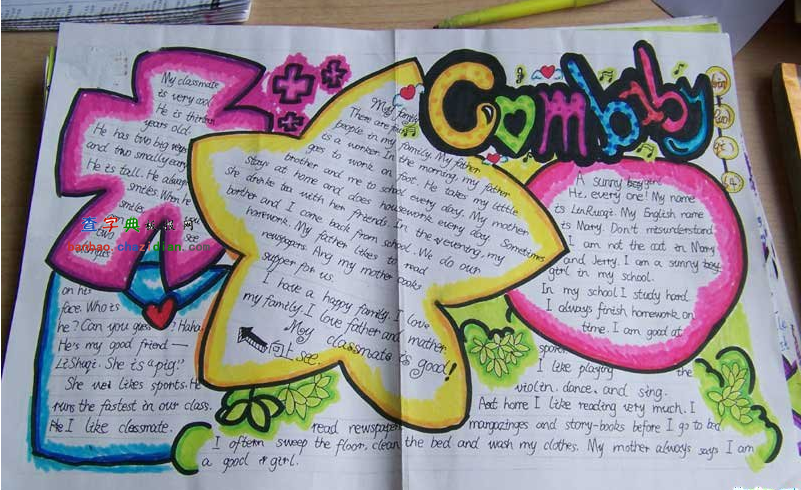 Com baby
My classmate
is very cool
He is thirteen
years old.
He has two big eyes
and two smally ears
He is tall. He always
smiles. When he
smiles
two
see
on his
face. Who is
he? Can you guess? Haha
He's my good friend —
LiShuqi. She is "pig!"
She likes sports. He
runs the fastest in our class.
I like classmate.
My family
There are four
people in my family. My father
is a worker. In the morning, my father
goes to work on foot. He takes my little
brother and me to school every day. My mother
stays at home and does housework every day. Sometimes
she drinks tea with her friends. In the evening, my
borther and I come back from school. We do our
homework. My father likes to read
newspapers. And my mother cooks
supper for us.
I have a happy family. I love
my family. I love father and mother.
My classmate is good!
向上see.
A sunny boy girl
Hi, every one! My name
is LinRuoqi. My English name
is Mary. Don't misunderstand
I am not the cat in Mary
and Jerry. I am a sunny boy
girl in my school.
In my school. I study hard.
I always finish homework on
time. I am good at
sports
I like playing the
violin. dance. and sing.
And home I like reading very much. I
read newspaper margazinges and story-books before I go to bed.
I oftern sweep the floor, clean the bed and wash my clothes. My mother always says I am
a good girl.
查字典
chazidian.com